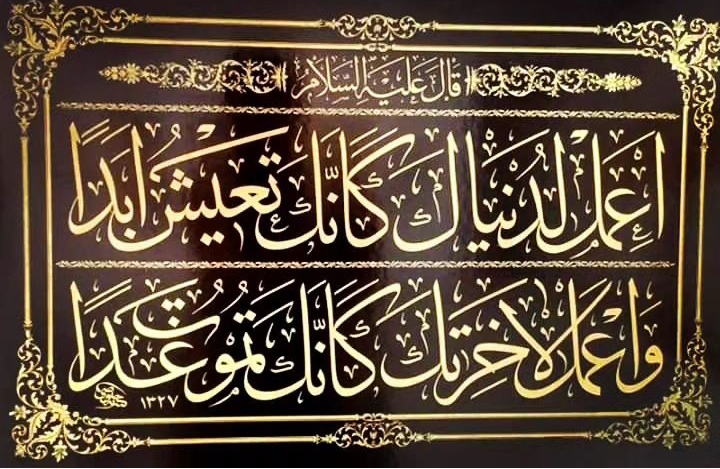 قَالَ عَلَيْهِ السَّلَامُ
اِعْمَلْ لِدُنْيَاكَ كَاَنَّكَ تَعِيشُ اَبَدًا
وَاعْمَلْ لِاٰخِرَتِكَ كَاَنَّكَ تَمُوتُ غَدًا
١٣٢٧